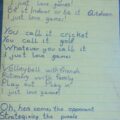 I just love games!
Be it Indoor or be it Outdoor
I just love games!
You call it cricket
You call it golf
Whatever you call it
I just love games!
Volleyball with friends
Running with family
Play out
I just love games!
Oh, here comes the opponent
Strategizing the